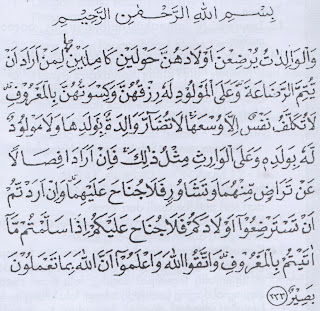 بِسْمِ اللهِ الرَّحْمٰنِ الرَّحِيْمِ
وَالْوَالِدٰتُ يُرْضِعْنَ اَوْلَادَهُنَّ حَوْلَيْنِ كَامِلَيْنِ ۗ لِمَنْ اَرَادَ اَنْ
يُّتِمَّ الرَّضَاعَةَ ۗ وَعَلَى الْمَوْلُوْدِ لَهٗ رِزْقُهُنَّ وَكِسْوَتُهُنَّ بِالْمَعْرُوْفِ ۗ
لَا تُكَلَّفُ نَفْسٌ اِلَّا وُسْعَهَا ۚ لَا تُضَآرَّ وَالِدَةٌ ۢ بِوَلَدِهَا وَلَا مَوْلُوْدٌ
لَّهٗ بِوَلَدِهٖ وَعَلَى الْوَارِثِ مِثْلُ ذٰلِكَ ۚ فَاِنْ اَرَادَا فِصَالًا
عَنْ تَرَاضٍ مِّنْهُمَا وَتَشَاوُرٍ فَلَا جُنَاحَ عَلَيْهِمَا ۗ وَاِنْ اَرَدْتُّمْ
اَنْ تَسْتَرْضِعُوْٓا اَوْلَادَكُمْ فَلَا جُنَاحَ عَلَيْكُمْ اِذَا سَلَّمْتُمْ مَّآ
اٰتَيْتُمْ بِالْمَعْرُوْفِ ۗ وَاتَّقُوا اللهَ وَاعْلَمُوْٓا اَنَّ اللهَ بِمَا تَعْمَلُوْنَ
بَصِيْرٌ ﴿٢٣٣﴾